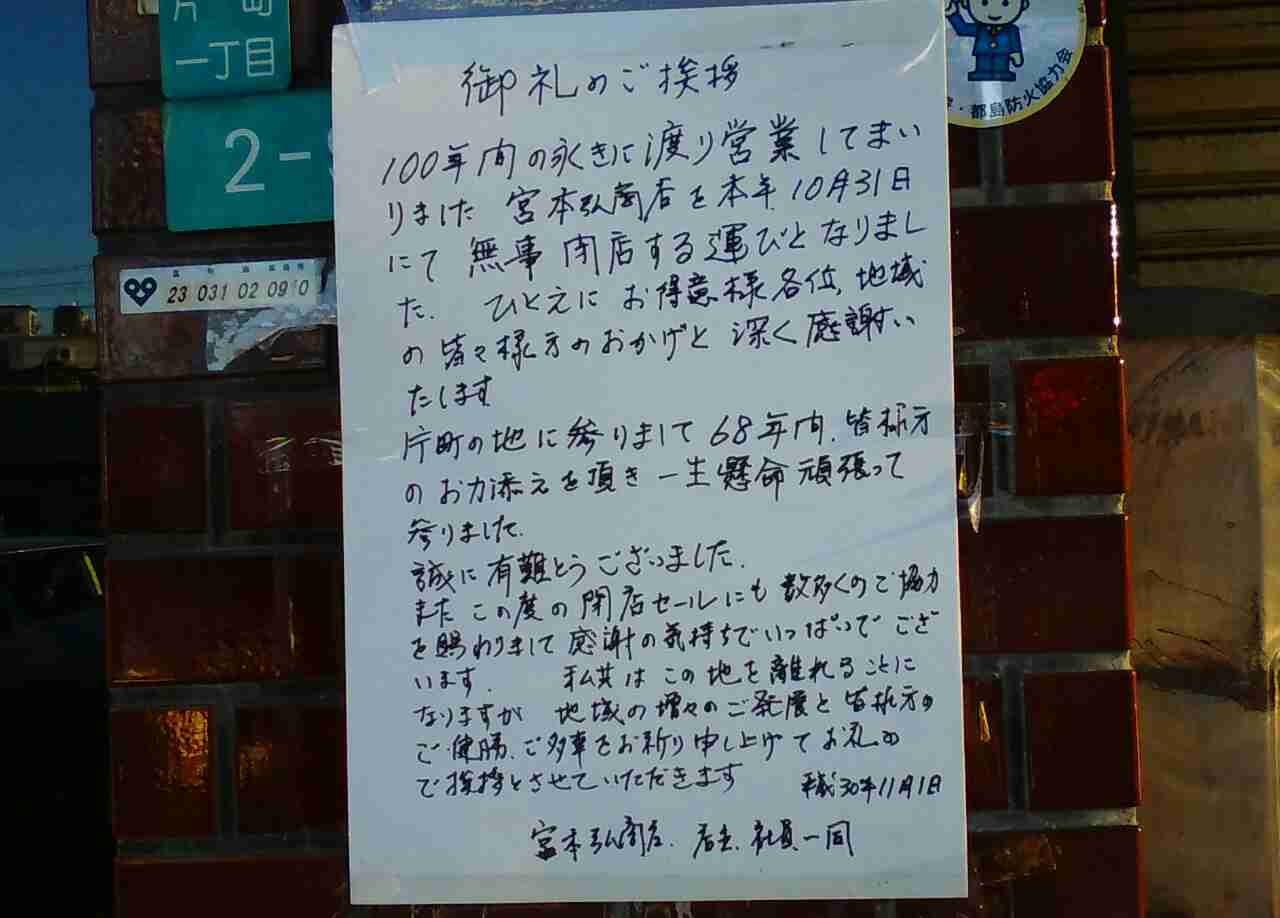 片町
一丁目
2-
23 031 02 0910
都島防火協力会
御礼のご挨拶
100年間の永きに渡り営業してまい
りました 宮本弘商店を本年10月31日
にて 無事 閉店する運びとなりまし
た. ひとえに お得意様各位、地域
の皆々様方のおかげと 深く感謝い
たします
片町の地に参りまして68年間、皆様方
のお力添えを頂き一生懸命頑張って
参りました.
誠に有難とうございました.
また この度の閉店セールにも 数多くのご協力
を賜わりまして感謝の気持ちでいっぱいでござ
います. 私共は この地を離れることに
なりますが 地域の増々のご発展と皆様方の
ご健勝、ご多幸をお祈り申し上げてお礼の
ご挨拶とさせていただきます 平成30年11月1日
宮本弘商店. 店主、社員一同